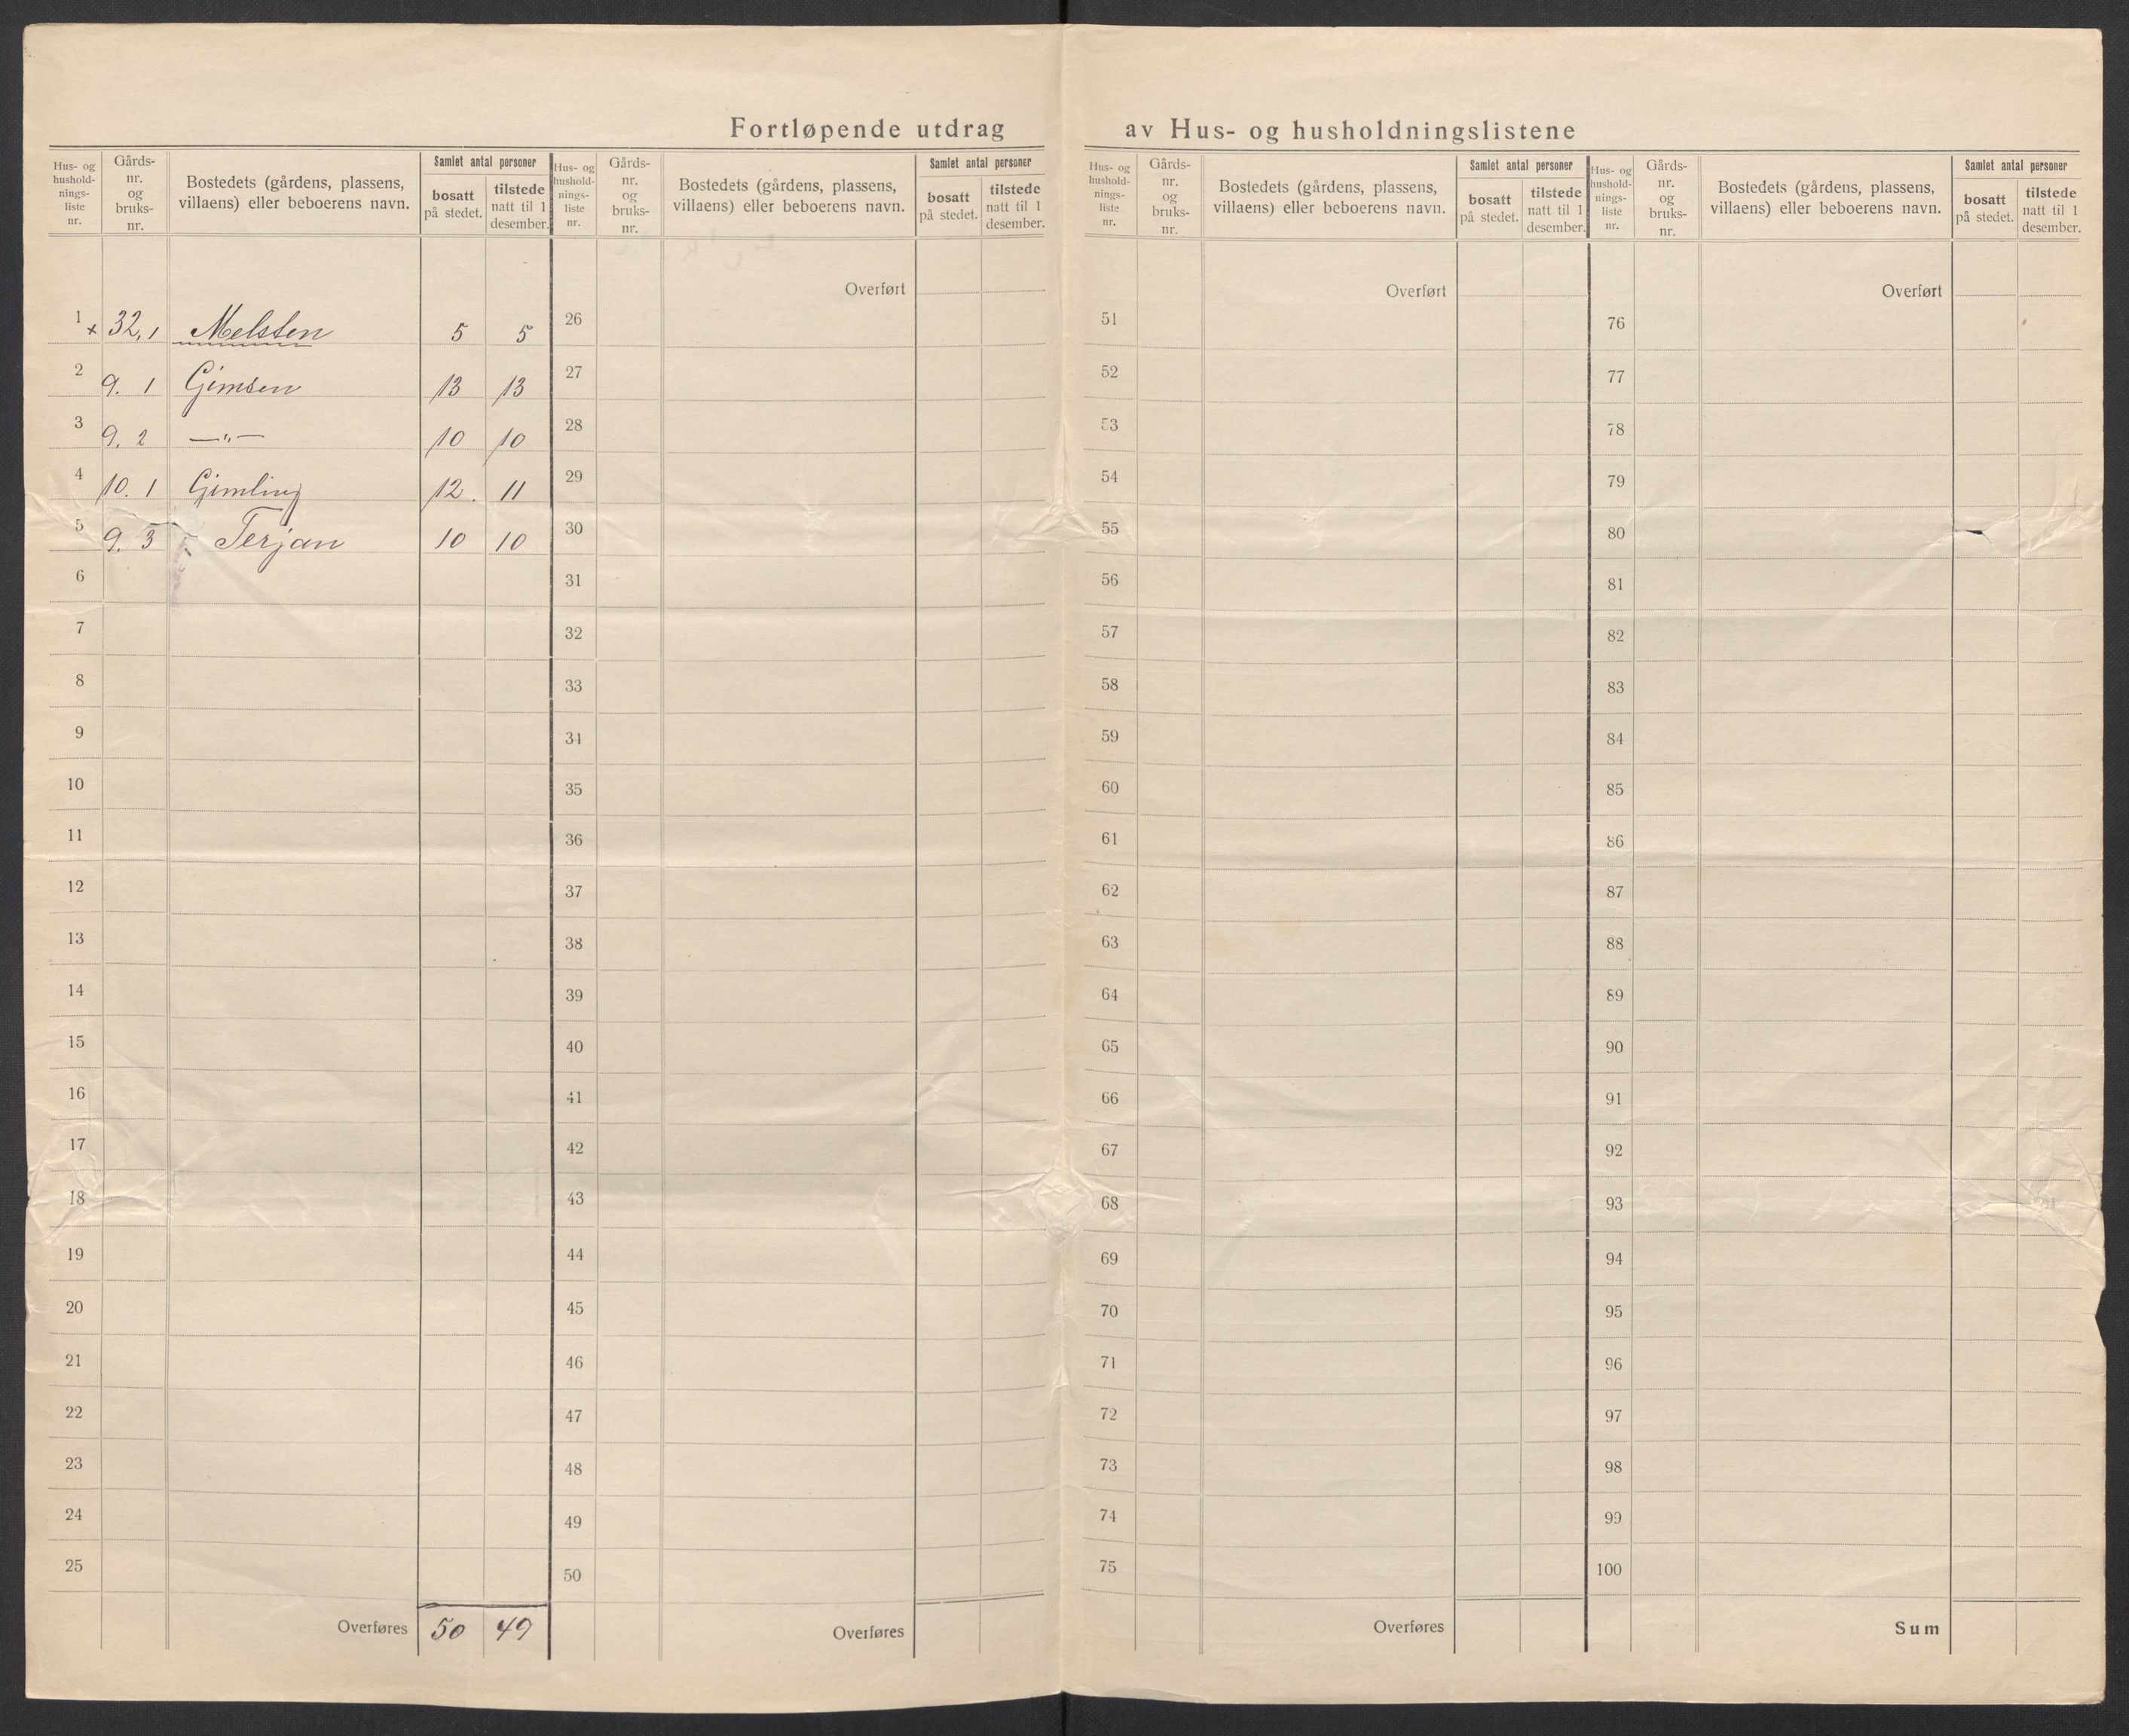 Fortløpende utdrag av Hus- og husholdningslistene
Hus- og hushold-nings-liste nr. Gårds-nr. og bruks-nr. Bostedets (gårdens, plassens, villaens) eller beboerens navn. Samlet antal personer bosatt på stedet. tilstede natt til 1 desember.
1 x 32,1 Melsten 5 5
2 9. 1 Gimsen 13 13
3 9. 2 —"— 10 10
4 10. 1 Gimling 12. 11
5 9. 3 Terjan 10 10
6
7
8
9
10
11
12
13
14
15
16
17
18
19
20
21
22
23
24
25
Overføres 50 49
Hus- og hushold-nings-liste nr. Gårds-nr. og bruks-nr. Bostedets (gårdens, plassens, villaens) eller beboerens navn. Samlet antal personer bosatt på stedet. tilstede natt til 1 desember.
Overført
26
27
28
29
30
31
32
33
34
35
36
37
38
39
40
41
42
43
44
45
46
47
48
49
50
Overføres
Hus- og hushold-nings-liste nr. Gårds-nr. og bruks-nr. Bostedets (gårdens, plassens, villaens) eller beboerens navn. Samlet antal personer bosatt på stedet. tilstede natt til 1 desember.
Overført
51
52
53
54
55
56
57
58
59
60
61
62
63
64
65
66
67
68
69
70
71
72
73
74
75
Overføres
Hus- og hushold-nings-liste nr. Gårds-nr. og bruks-nr. Bostedets (gårdens, plassens, villaens) eller beboerens navn. Samlet antal personer bosatt på stedet. tilstede natt til 1 desember.
Overført
76
77
78
79
80
81
82
83
84
85
86
87
88
89
90
91
92
93
94
95
96
97
98
99
100
Sum